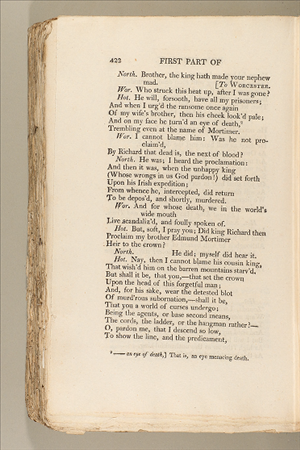 422 FIRST PART OF
North. Brother, the king hath made your nephew
mad. [To WORCESTER.
Wor. Who struck this heat up, after I was gone?
Hot. He will, forsooth, have all my prisoners;
And when I urg'd the ransome once again
Of my wife's brother, then his cheek look'd pale;
And on my face he turn'd an eye of death,²
Trembling even at the name of Mortimer.
Wor. I cannot blame him: Was he not pro-
claim'd,
By Richard that dead is, the next of blood?
North. He was; I heard the proclamation:
And then it was, when the unhappy king
(Whose wrongs in us God pardon!) did set forth
Upon his Irish expedition;
From whence he, intercepted, did return
To be depos'd, and, shortly, murdered.
Wor. And for whose death, we in the world's
wide mouth
Live scandaliz'd, and foully spoken of.
Hot. But, soft, I pray you; Did king Richard then
Proclaim my brother Edmund Mortimer
Heir to the crown?
North. He did; myself did hear it.
Hot. Nay, then I cannot blame his cousin king,
That wish'd him on the barren mountains starv'd.
But shall it be, that you,—that set the crown
Upon the head of this forgetful man;
And, for his sake, wear the detested blot
Of murd'rous subornation,—shall it be,
That you a world of curses undergo;
Being the agents, or base second means,
The cords, the ladder, or the hangman rather?—
O, pardon me, that I descend so low,
To show the line, and the predicament,
² — an eye of death,] That is, an eye menacing death.